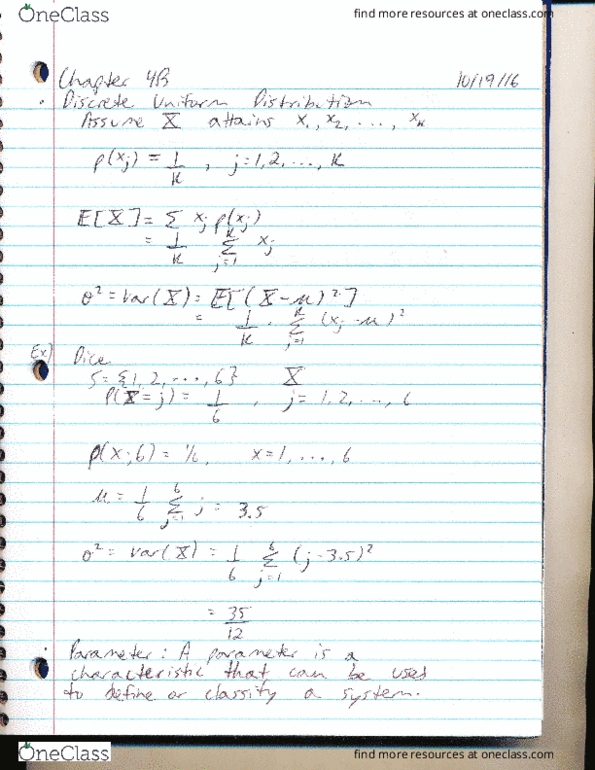 OneClass
find more resources at oneclass.com
Chapter 4B 10/19/16
• Discrete Uniform Distribution
Assume X attains x₁, x₂, ..., xₖ
p(xⱼ) = 1/K , j = 1, 2, ..., K
E[X] = Σ xⱼ p(xⱼ)
= 1/K Σ_{j=1}^{K} xⱼ
σ² = Var(X) = E[(X-μ)²]
= 1/K · Σ_{j=1}^{K} (xⱼ - μ)²
Ex) Dice
S = {1, 2, ..., 6} X
P(X = j) = 1/6 , j = 1, 2, ..., 6
p(x; 6) = 1/6, x = 1, ..., 6
μ = 1/6 Σ_{j=1}^{6} j = 3.5
σ² = Var(X) = 1/6 Σ_{j=1}^{6} (j - 3.5)²
= 35/12
• Parameter: A parameter is a
characteristic that can be used
to define or classify a system.
OneClass
find more resources at oneclass.com